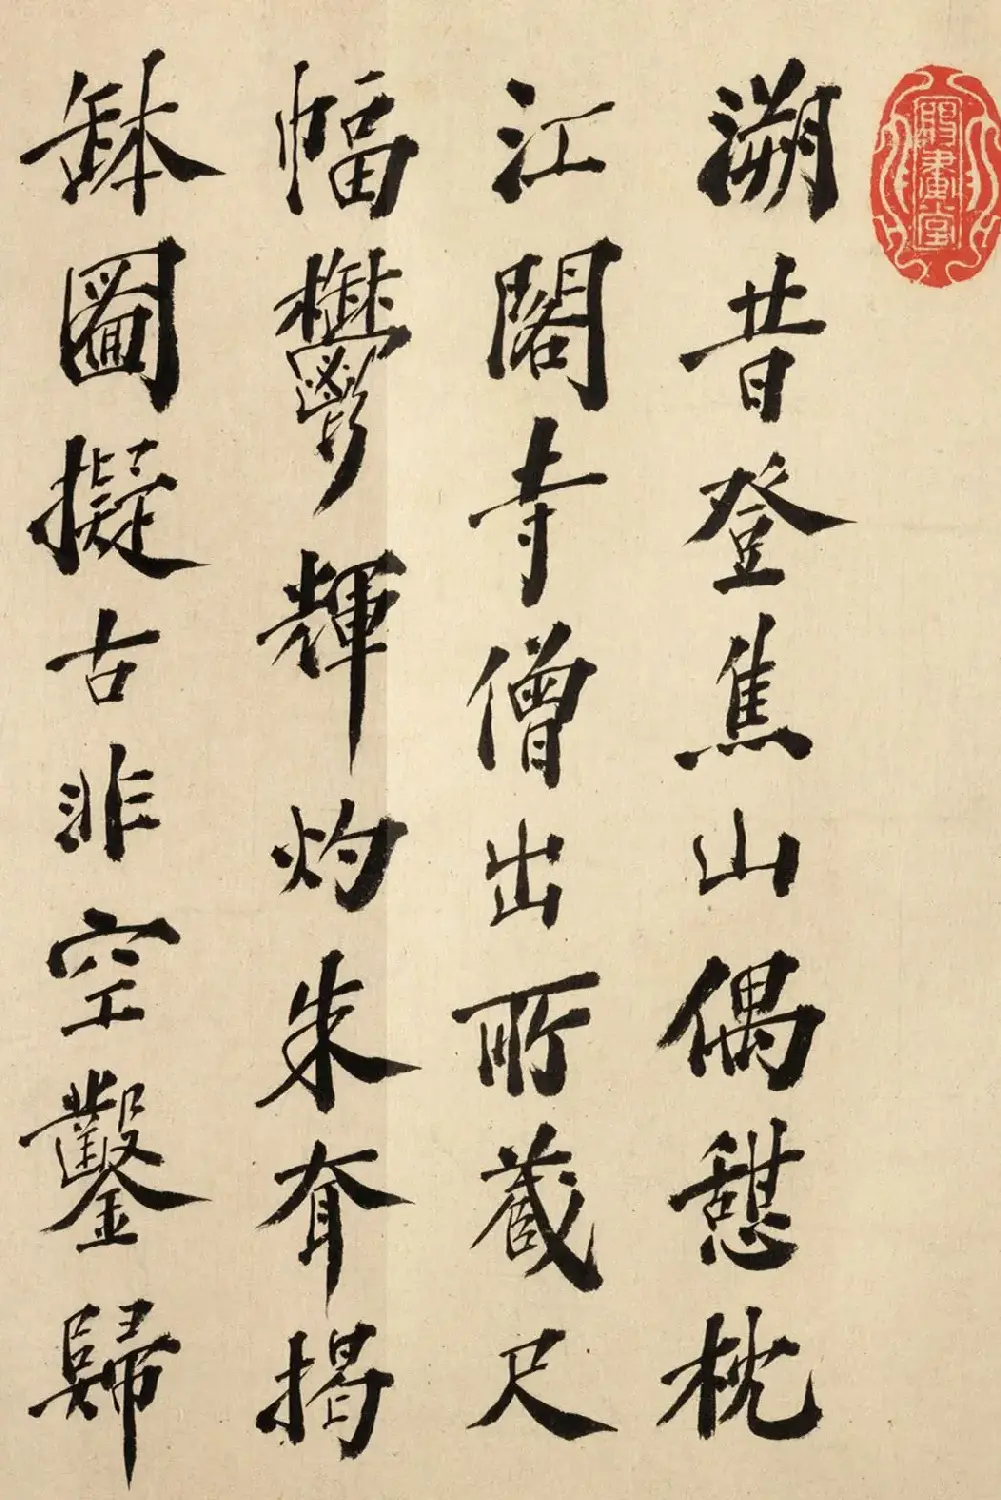 溯昔登焦山偶憇枕
江閣寺僧出所藏尺
幅鬱輝灼朱耷揭
缽圖擬古非空鑿歸